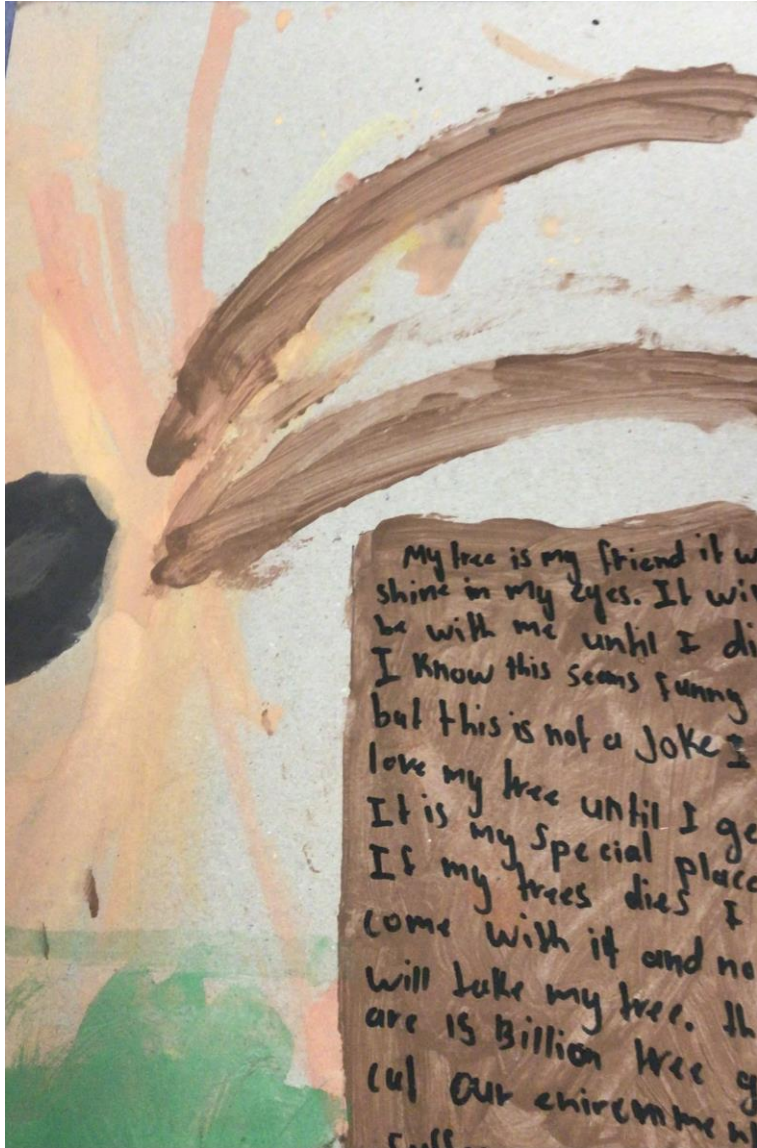 My tree is my friend it w
shine in my eyes. It wi
be with me until I di
I know this seems funny
but this is not a Joke I
love my tree until I ge
It is my special place
If my trees dies I
come with it and no
will take my tree. th
are 15 Billion tree g
cut our eniremme
suff